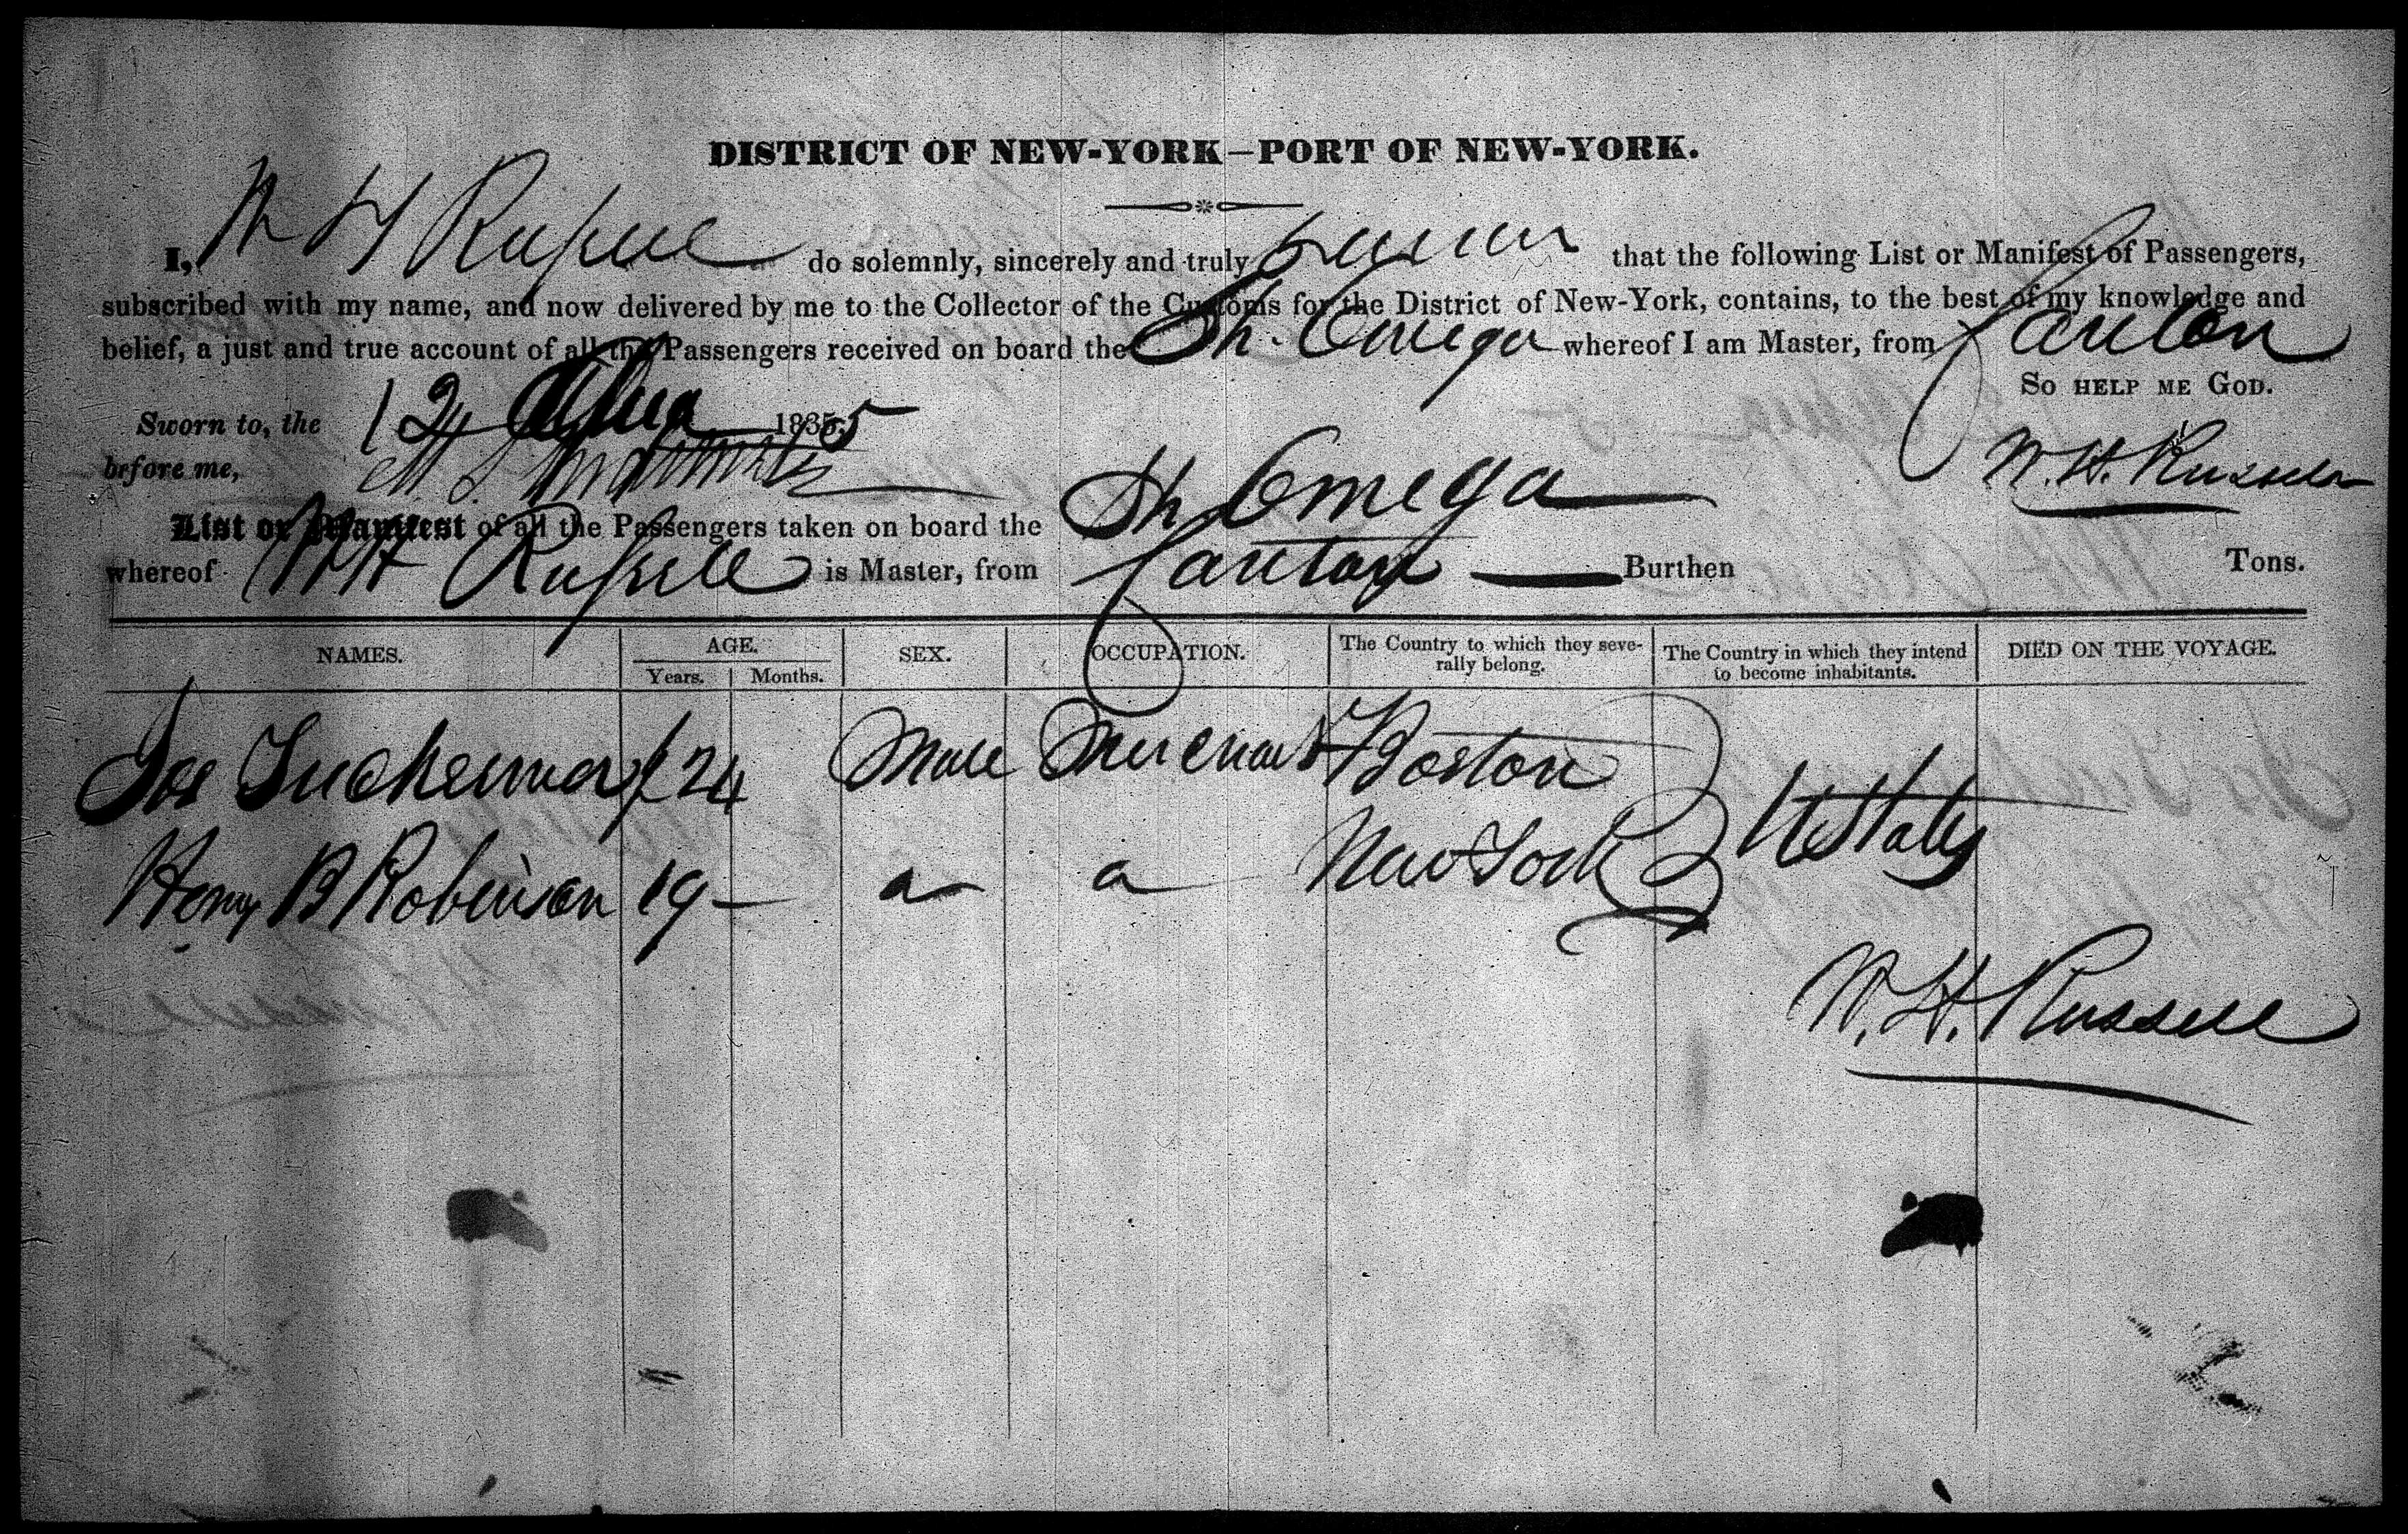 DISTRICT OF NEW-YORK—PORT OF NEW-YORK.
I, W H Russell do solemnly, sincerely and truly swear that the following List or Manifest of Passengers,
subscribed with my name, and now delivered by me to the Collector of the Customs for the District of New-York, contains, to the best of my knowledge and
belief, a just and true account of all the Passengers received on board the Sh. Omega whereof I am Master, from Canton
So help me God.
Sworn to, the 1835
before me,
W. H. Russell
List or Manifest of all the Passengers taken on board the Sh Omega
whereof W H Russell is Master, from Canton — Burthen Tons.
NAMES. AGE. Years. Months. SEX. OCCUPATION. The Country to which they severally belong. The Country in which they intend to become inhabitants. DIED ON THE VOYAGE.
Jos Tuckerman 24 Male Merchant Boston
U States
Henry B Robinson 19 — " " New York
W. H. Russell